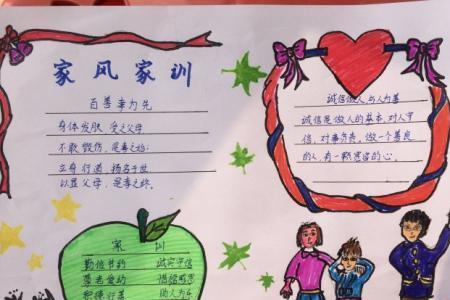 家风家训
百善孝为先
身体发肤，受之父母
不敢毁伤，是孝之始；
立身行道，扬名于世
以显父母，是孝之终。
诚信做人 与人为善
诚信是做人的基本，对人守
信，对事负责，做一个善良
的人，有一颗宽容的心。
家 训
勤俭节约 诚实守信
尊老爱幼
助人为